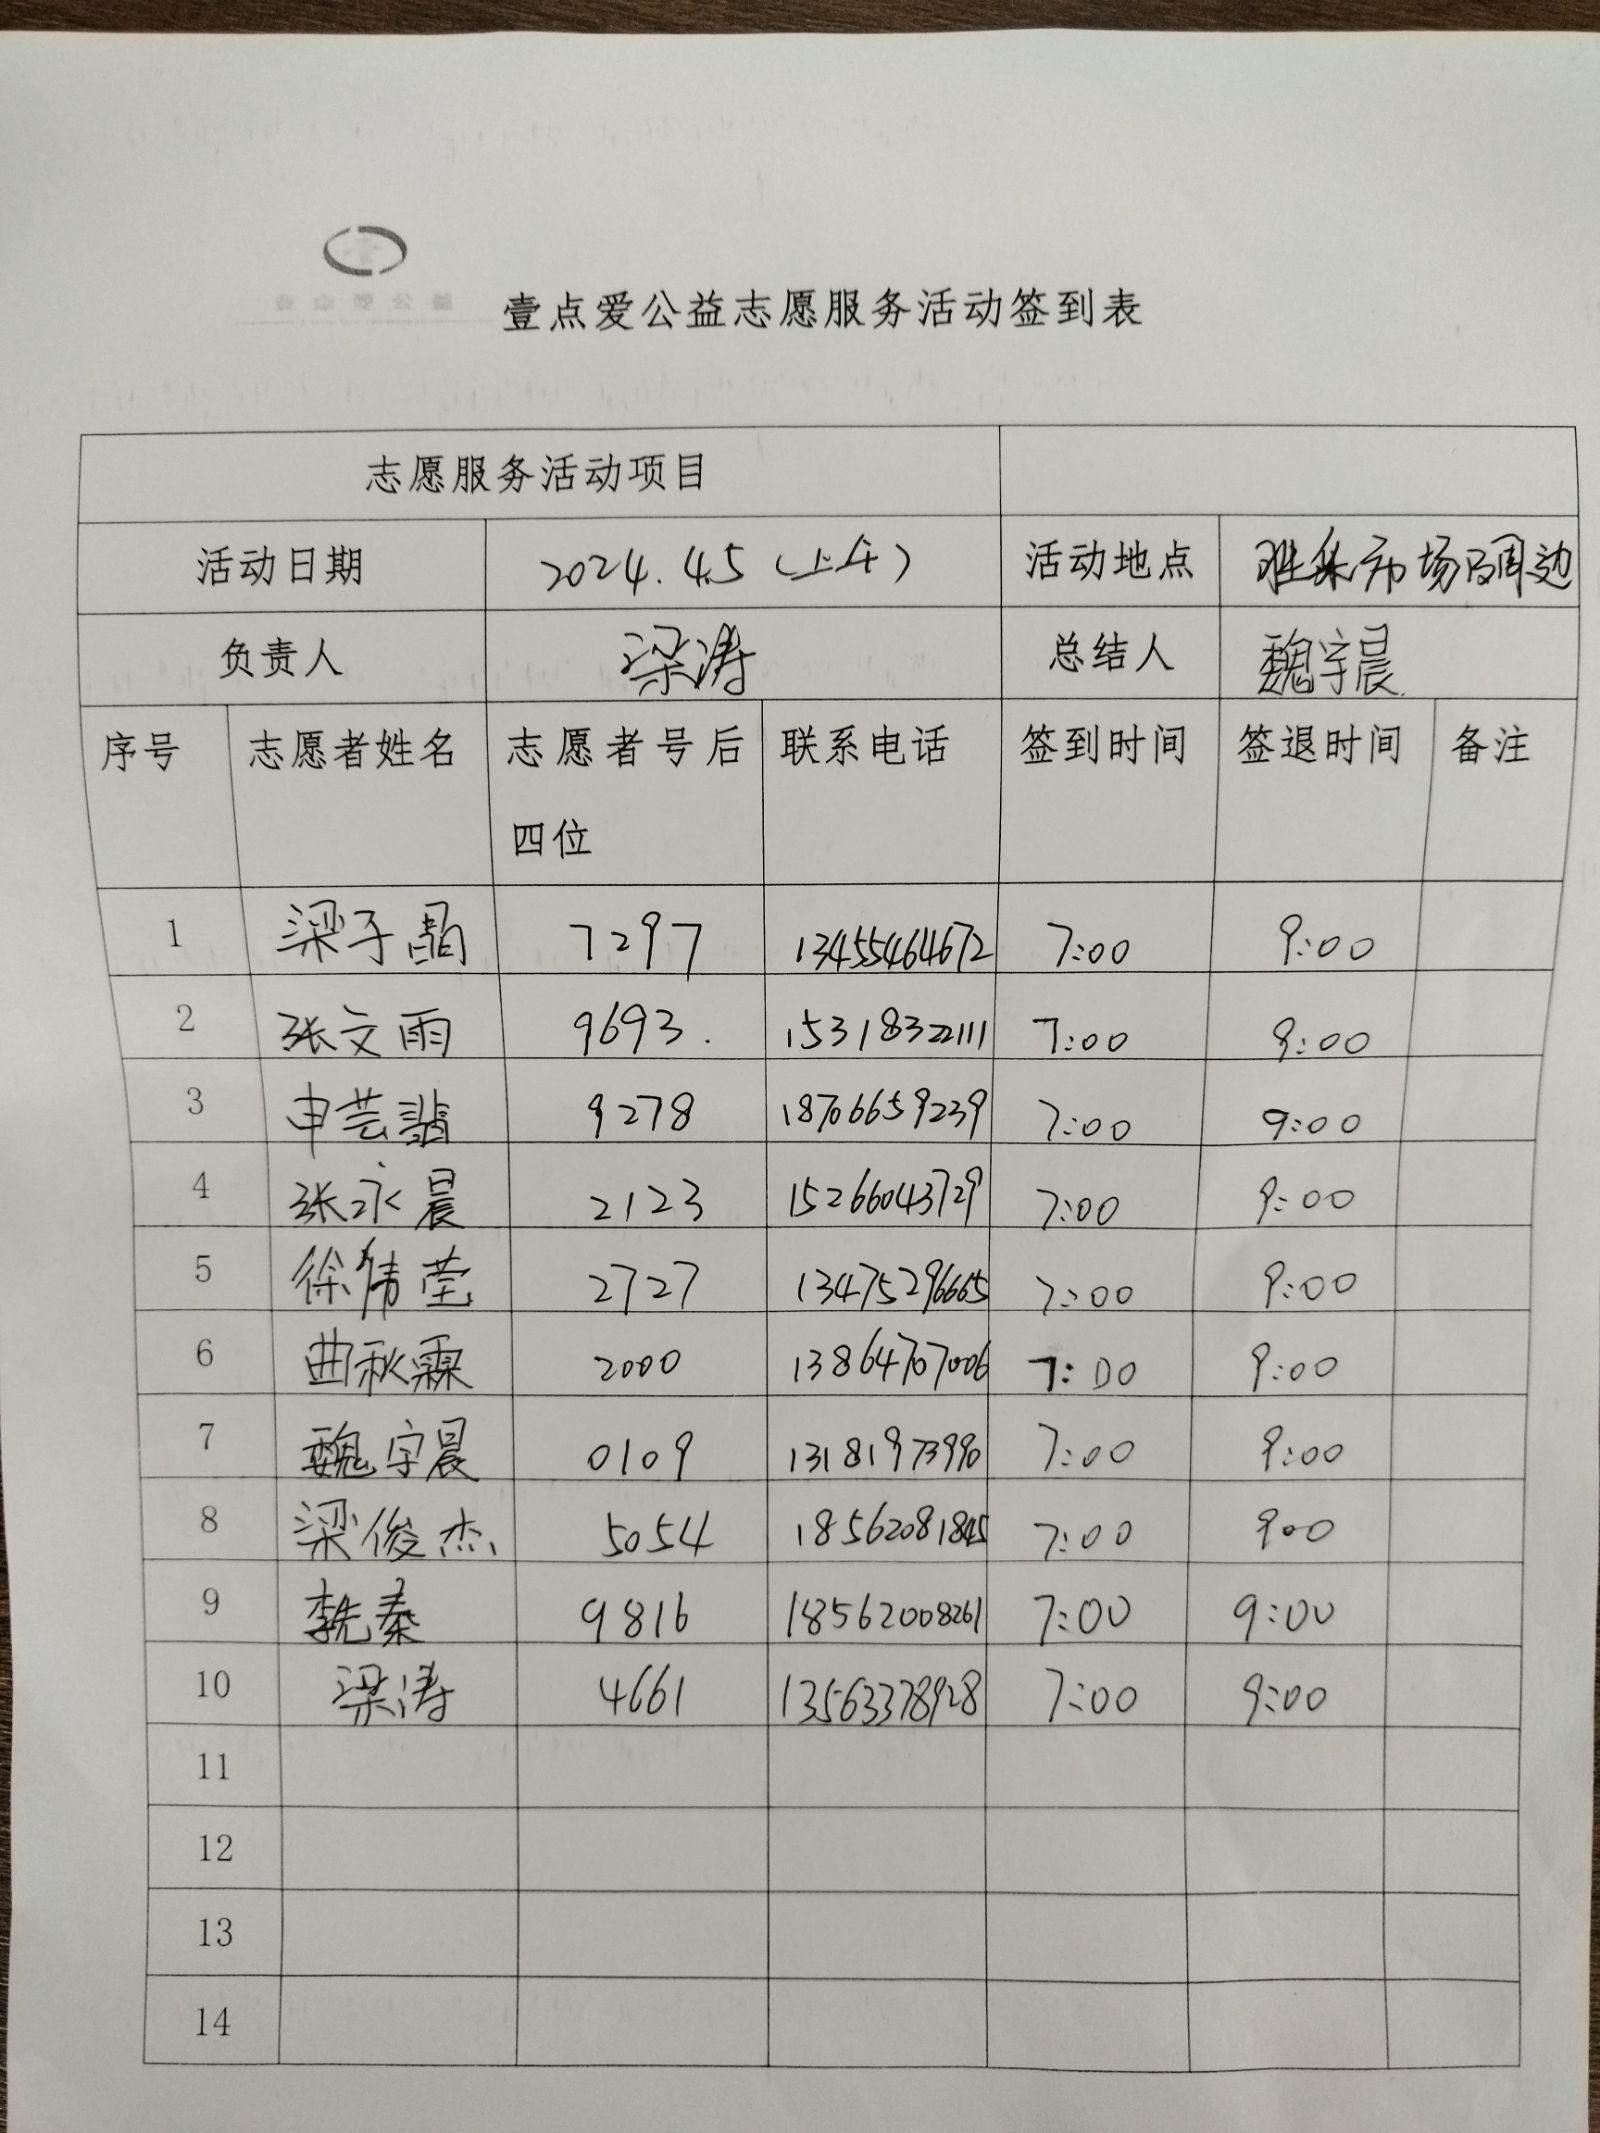 壹点爱公益
壹点爱公益志愿服务活动签到表
志愿服务活动项目
活动日期 2024.4.5(上午) 活动地点 胜采市场及周边
负责人 梁涛 总结人 魏宇晨
序号 志愿者姓名 志愿者号后四位 联系电话 签到时间 签退时间 备注
1 梁子晶 7297 13455464672 7:00 9:00
2 张文雨 9693. 15318322111 7:00 9:00
3 申芸 9278 18706659239 7:00 9:00
4 张永晨 2123 15266043729 7:00 9:00
5 徐伟莹 2727 13475296665 7:00 9:00
6 曲秋霖 2000 13864707006 7:00 9:00
7 魏宇晨 0109 13181973990 7:00 9:00
8 梁俊杰 5054 18562081845 7:00 9:00
9 李先秦 9816 18562008261 7:00 9:00
10 梁涛 4661 13563378928 7:00 9:00
11
12
13
14